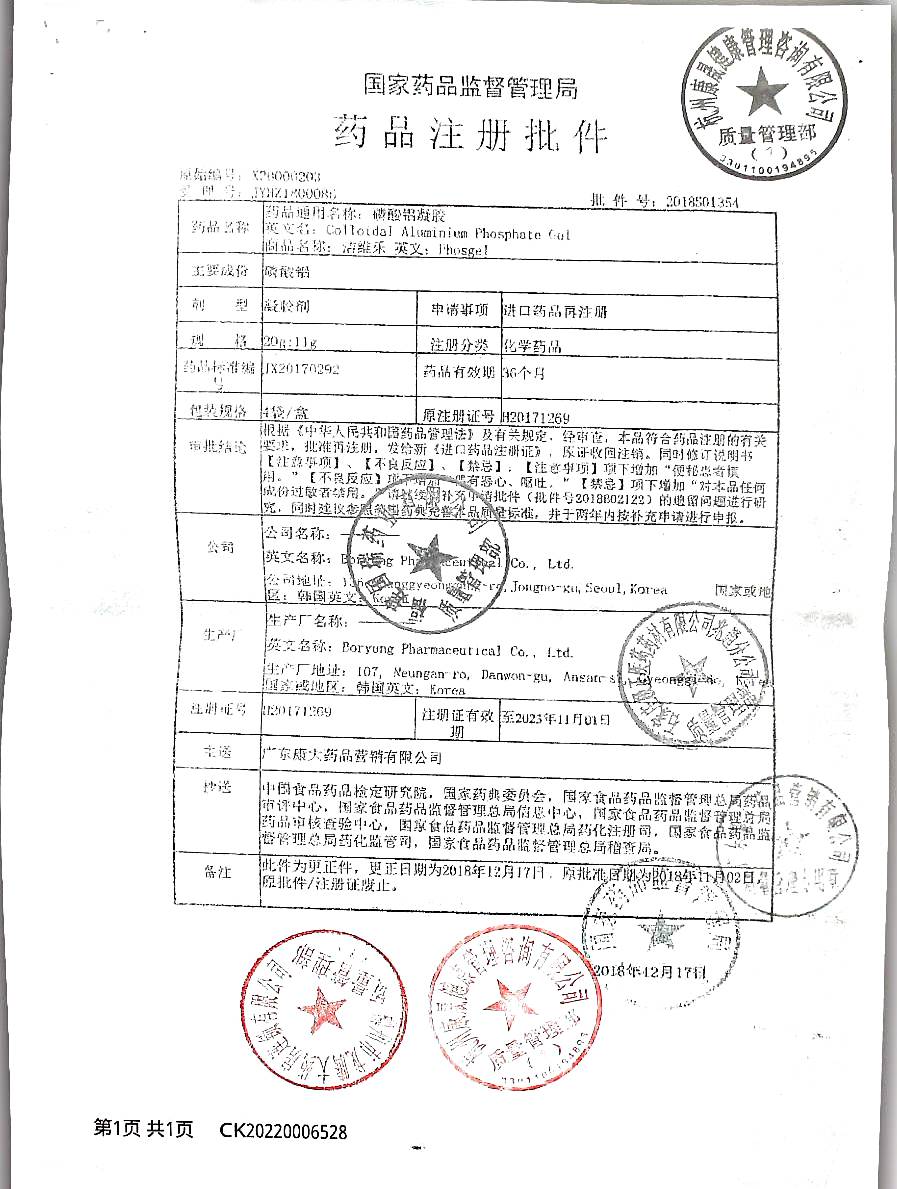 国家药品监督管理局
药品注册批件
原始编号：X78000203
受理号：JYHZ1800086
批件号：2018S01354
药品名称
药品通用名称：磷酸铝凝胶
英文名：Colloidal Aluminium Phosphate Gel
商品名称：洁维乐 英文：Phosgel
主要成份 磷酸铝
剂型 凝胶剂 申请事项 进口药品再注册
规格 20g:11g 注册分类 化学药品
药品标准编号 JX20170292 药品有效期 36个月
包装规格 4袋/盒 原注册证号 H20171269
审批结论
根据《中华人民共和国药品管理法》及有关规定，经审查，本品符合药品注册的有关
要求，批准再注册，发给新《进口药品注册证》，原证收回注销。同时修订说明书
【注意事项】、【不良反应】、【禁忌】：【注意事项】项下增加“便秘患者慎
用。”【不良反应】项下增加 偶有恶心、呕吐。”【禁忌】项下增加“对本品任何
成份过敏者禁用。”请继续对补充申请批件（批件号2018B02122）的遗留问题进行研
究，同时建议参照 国药典完善本品质量标准，并于两年内按补充申请进行申报。
公司
公司名称：——
英文名称：Boryung Pharmaceutical Co., Ltd.
公司地址： Jongno-gu, Seoul, Korea 国家或地
区：韩国英文：Korea
生产厂
生产厂名称：——
英文名称：Boryung Pharmaceutical Co., Ltd.
生产厂地址：107, Neungan-ro, Danwon-gu, Ansan-si, Gyeonggi-do,
国家或地区：韩国英文：Korea
注册证号 H20171269 注册证有效期 至2023年11月01日
主送 广东康大药品营销有限公司
抄送
中国食品药品检定研究院，国家药典委员会，国家食品药品监督管理总局药品
审评中心，国家食品药品监督管理总局信息中心，国家食品药品监督管理总局
药品审核查验中心，国家食品药品监督管理总局药化注册司，国家食品药品监
督管理总局药化监管司，国家食品药品监督管理总局稽查局。
备注
此件为更正件，更正日期为2018年12月17日，原批准日期为2018年11月02日，
原批件/注册证废止。
2018年12月17日
杭州康晟健康管理咨询有限公司
质量管理部
（1）
3301100194895
国家药品监督管理局
质量管理部
杭州康晟健康管理咨询有限公司
质量管理部
（1）
3301100194895
第1页 共1页 CK20220006528